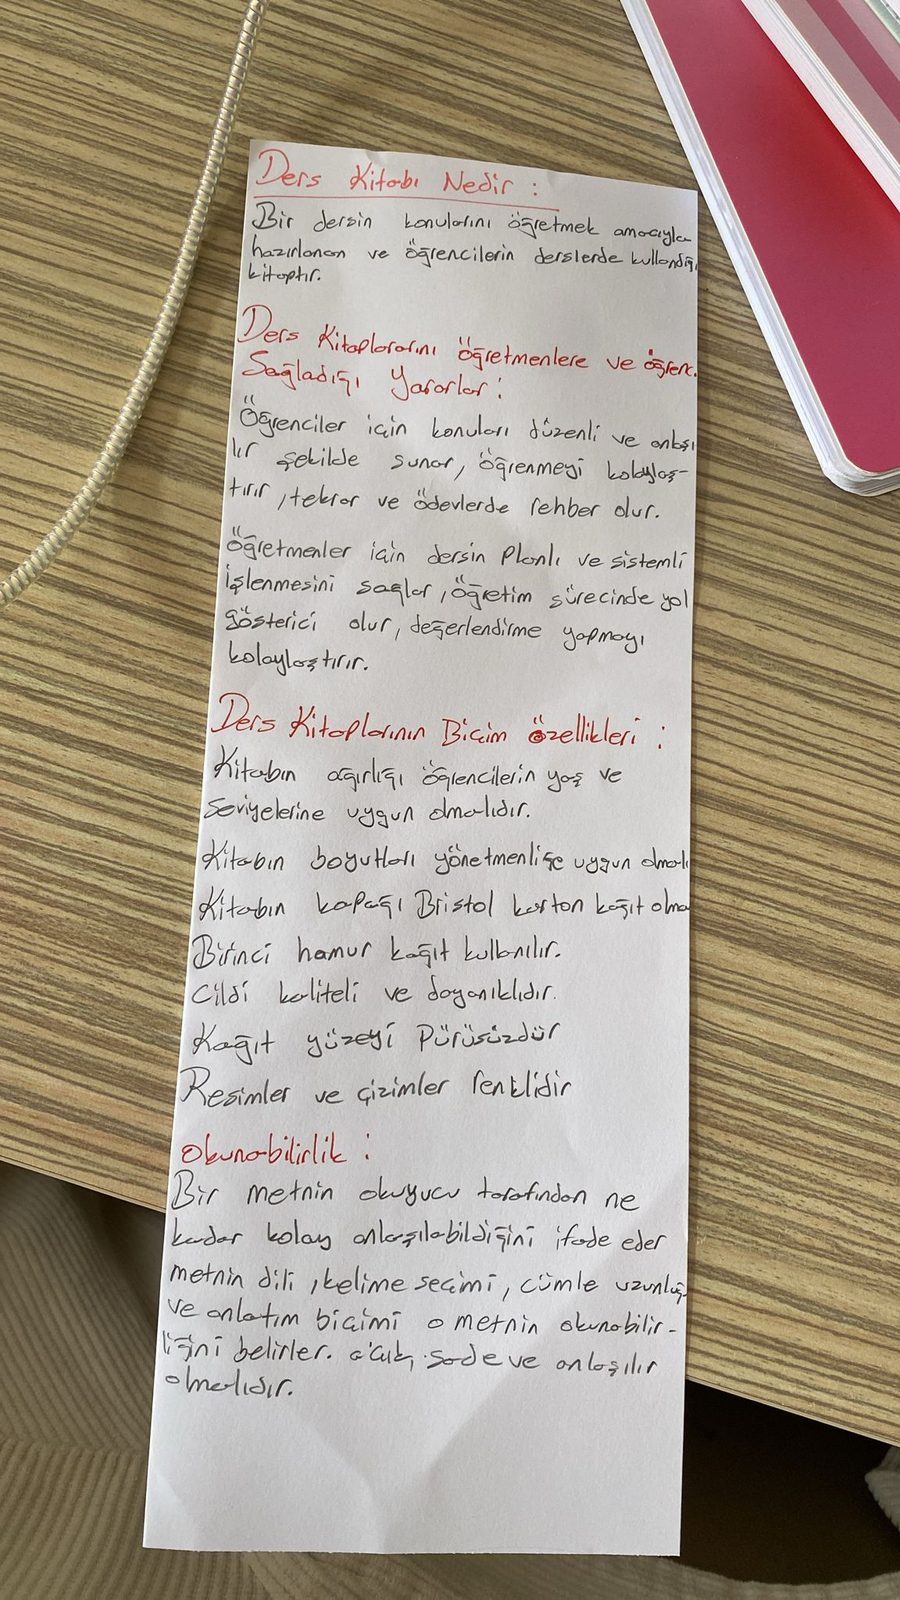 Ders Kitabı Nedir :
Bir dersin konularını öğretmek amacıyla
hazırlanan ve öğrencilerin derslerde kullandığı
kitaptır.
Ders Kitaplararını öğretmenlere ve öğrenc.
Sağladığı Yararlar :
Öğrenciler için konuları düzenli ve anlaşı
lır şekilde sunar, öğrenmeyi kolaylaş-
tırır, tekrar ve ödevlerde rehber olur.
Öğretmenler için dersin Planlı ve sistemli
işlenmesini sağlar, öğretim sürecinde yol
gösterici olur, değerlendirme yapmayı
kolaylaştırır.
Ders Kitaplarının Biçim özellikleri :
Kitabın ağırlığı öğrencilerin yaş ve
Seviyelerine uygun olmalıdır.
Kitabın boyutları yönetmenliğe uygun olmalı
Kitabın kapağı Bristol karton kağıt olma
Birinci hamur kağıt kullanılır.
Cildi kaliteli ve dayanıklıdır.
Kağıt yüzeyi Pürüsüzdür
Resimler ve çizimler renklidir
Okunabilirlik :
Bir metnin okuyucu tarafından ne
kadar kolay anlaşılabildiğini ifade eder
metnin dili, kelime seçimi, cümle uzunluğu
ve anlatım biçimi o metnin okunabilir-
liğini belirler. açık, sade ve anlaşılır
olmalıdır.